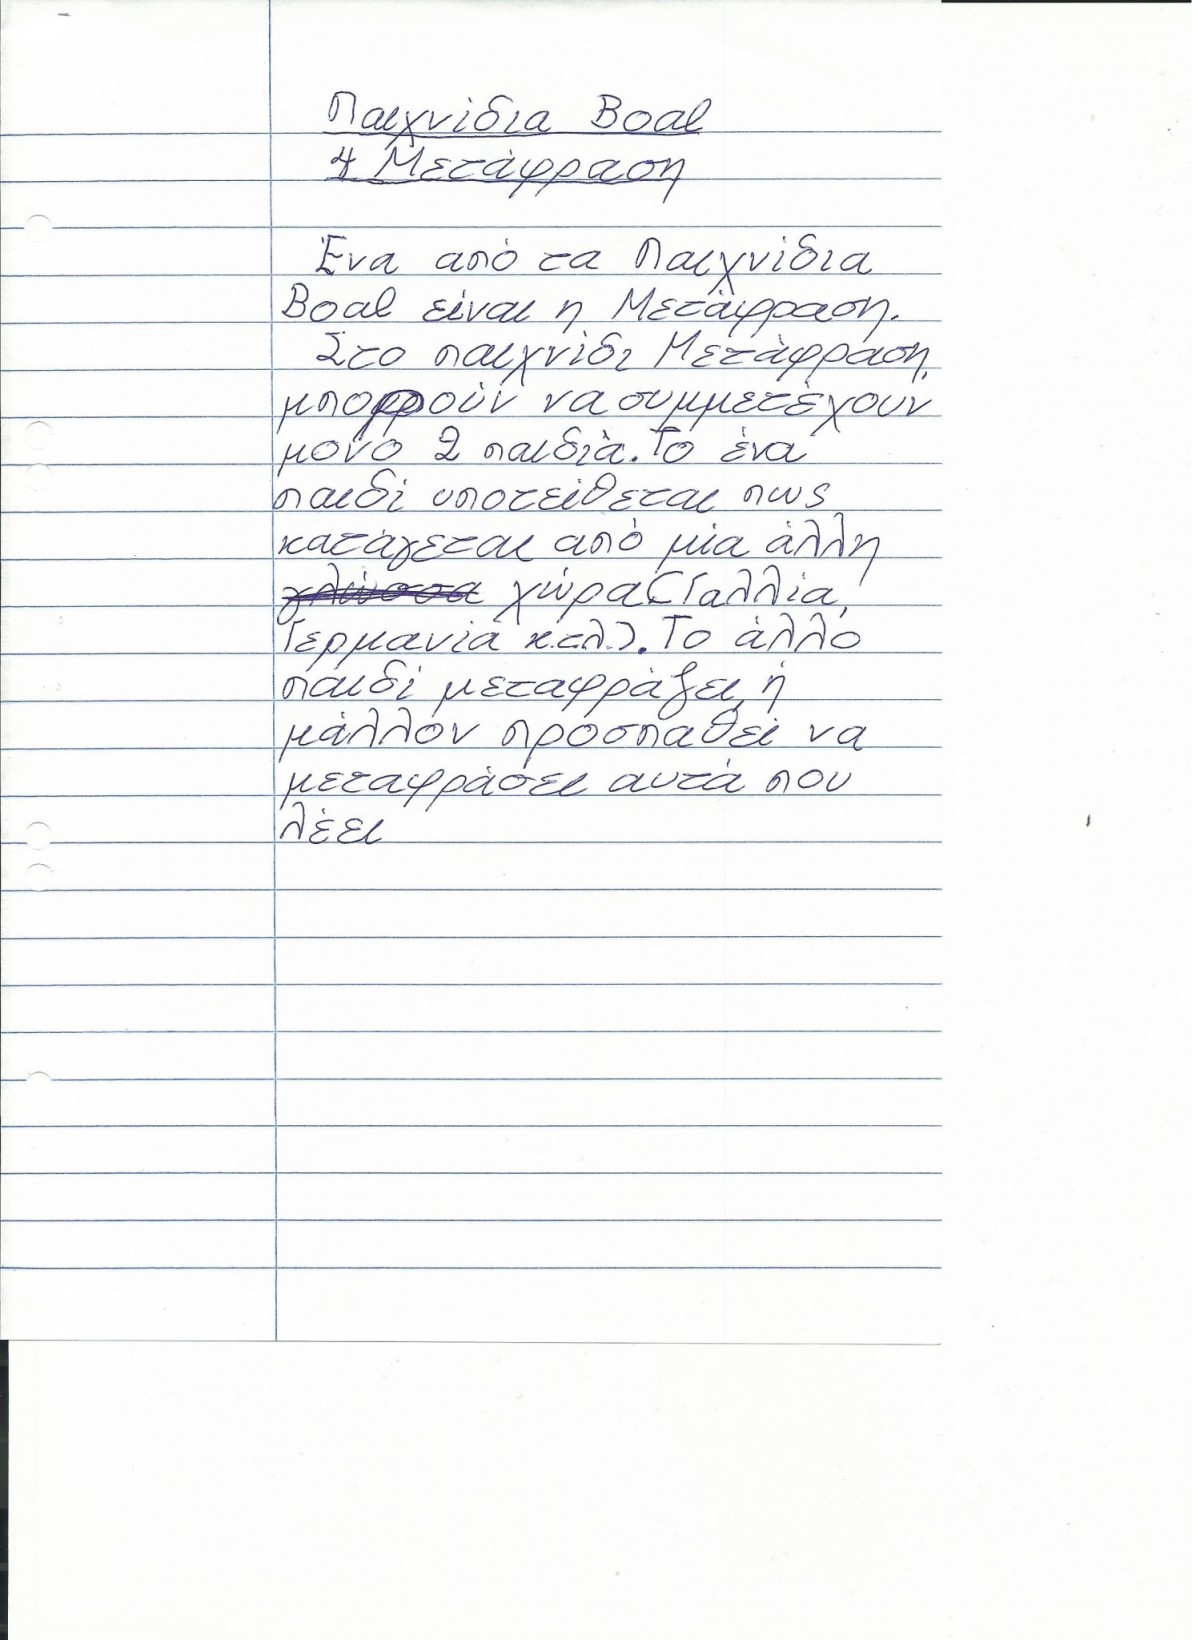 Παιχνίδια Boal
4 Μετάφραση
Ένα από τα Παιχνίδια
Boal είναι η Μετάφραση.
Στο παιχνίδι Μετάφραση,
μπορούν να συμμετέχουν
μόνο 2 παιδιά. Το ένα
παιδί υποτείθεται πως
κατάγεται από μία άλλη
γλώσσα χώρα (Γαλλία,
Γερμανία κ.τ.λ.). Το άλλο
παιδί μεταφράζει, ή
μάλλον προσπαθεί να
μεταφράσει αυτά που
λέει